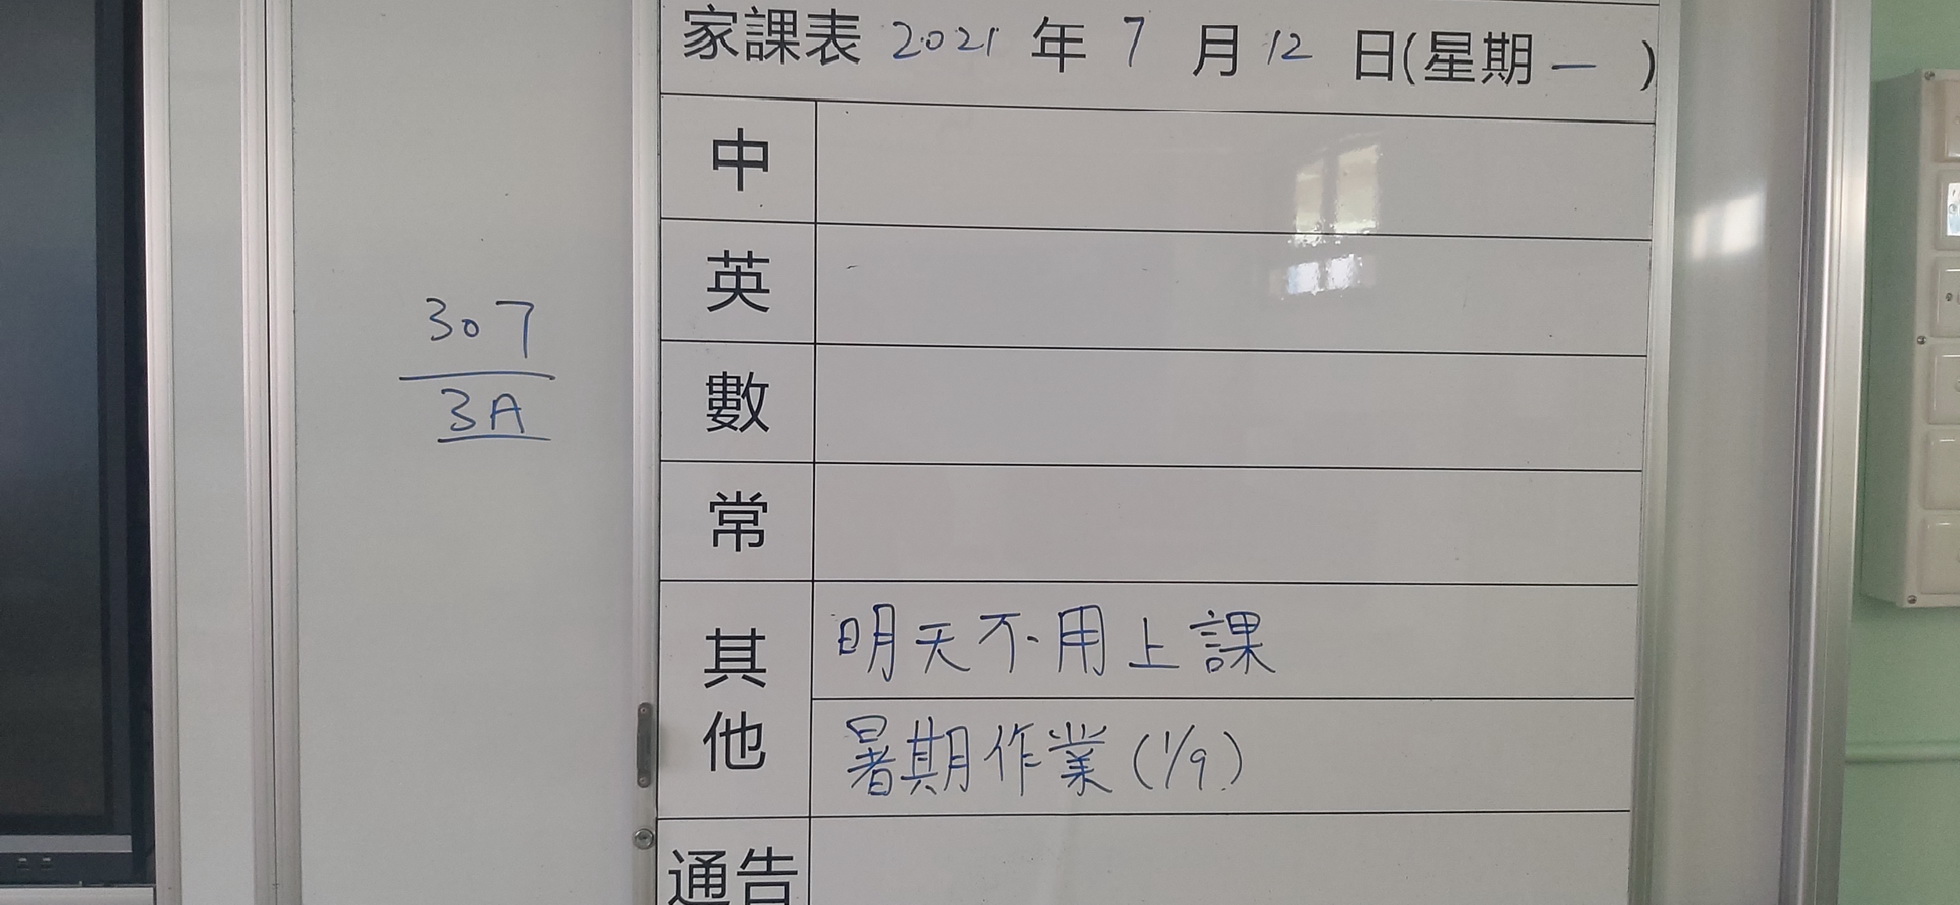 家課表 2021 年 7 月 12 日(星期一)
307
3A
中
英
數
常
其他
明天不用上課
暑期作業(1/9)
通告